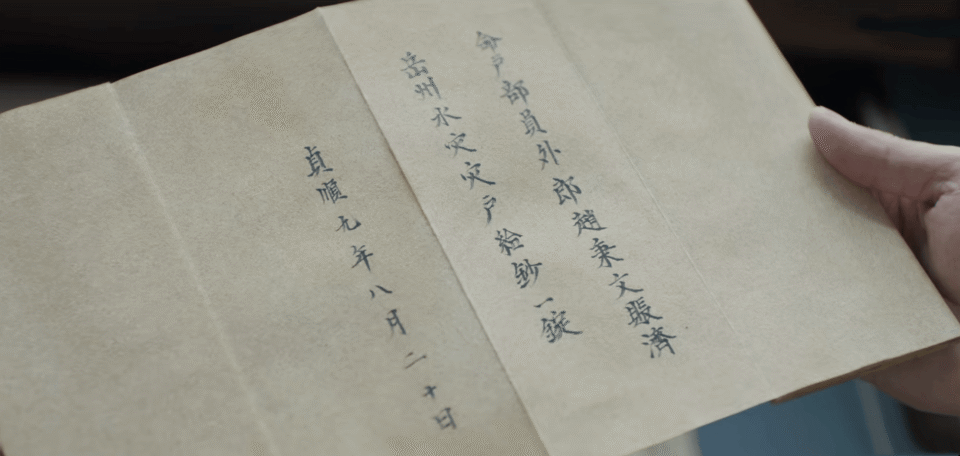 命戶部員外郎趙秉文賑濟
岳州水灾灾戶給鈔一錠
貞順元年八月二十日